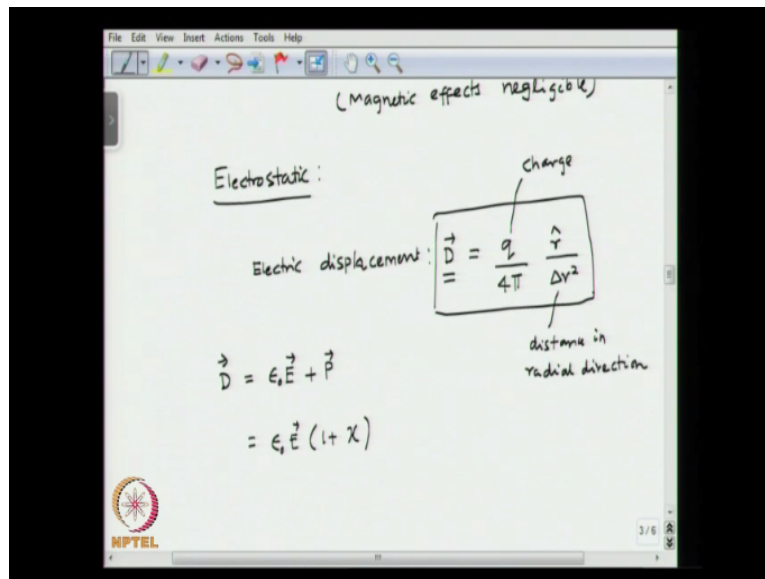 File Edit View Insert Actions Tools Help
(Magnetic effects negligible)
Electrostatic :
charge
Electric displacement : D⃗ = q/4π r̂/Δr²
distance in
radial direction
D⃗ = ϵ₀E⃗ + P⃗
= ϵ₀E⃗ (1+ χ)
3/6
NPTEL